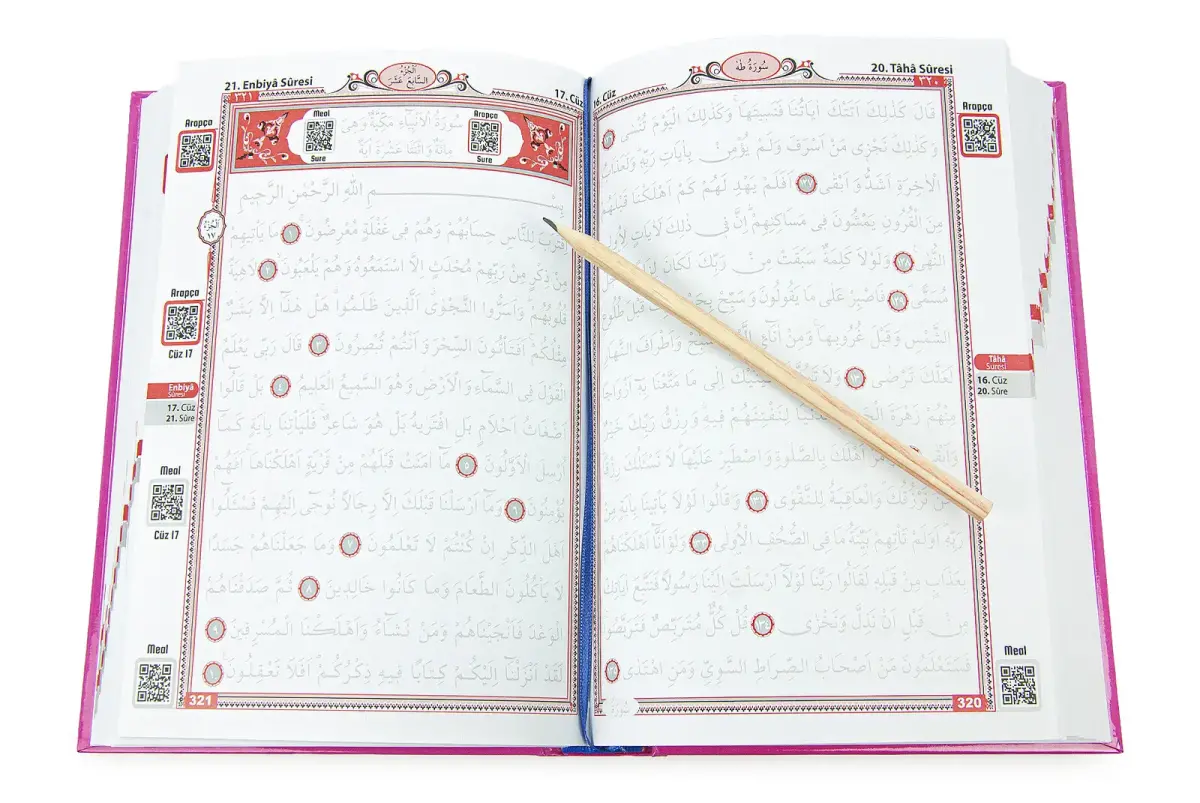 20. Tâhâ Sûresi
سُورَةُ طٰهٰ
16. Cüz
٣٢٠
Arapça
قَالَ كَذٰلِكَ اَتَتْكَ اٰيَاتُنَا فَنَسِيتَهَا وَكَذٰلِكَ الْيَوْمَ تُنْسٰى
وَكَذٰلِكَ نَجْزِى مَنْ اَسْرَفَ وَلَمْ يُؤْمِنْ بِاٰيَاتِ رَبِّهِ وَلَعَذَابُ
الْاٰخِرَةِ اَشَدُّ وَاَبْقٰى اَفَلَمْ يَهْدِ لَهُمْ كَمْ اَهْلَكْنَا قَبْلَهُمْ
مِنَ الْقُرُونِ يَمْشُونَ فِى مَسَاكِنِهِمْ اِنَّ فِى ذٰلِكَ لَاٰيَاتٍ لِاُولِى
النُّهٰى وَلَوْلَا كَلِمَةٌ سَبَقَتْ مِنْ رَبِّكَ لَكَانَ
مُسَمًّى فَاصْبِرْ عَلٰى مَا يَقُولُونَ وَسَبِّحْ قَبْلَ طُلُوعِ
الشَّمْسِ وَقَبْلَ غُرُوبِهَا وَمِنْ اٰنَآئِ وَاَطْرَافَ النَّهَارِ
لَعَلَّكَ تَرْضٰى اِلٰى مَا مَتَّعْنَا بِهِ اَزْوَاجًا
مِنْهُمْ زَهْرَةَ لِنَفْتِنَهُمْ فِيهِ وَرِزْقُ رَبِّكَ خَيْرٌ
اَهْلَكَ بِالصَّلٰوةِ وَاصْطَبِرْ عَلَيْهَا لَا نَسْـَٔلُكَ رِزْقًا
نَحْنُ نَرْزُقُكَ وَالْعَاقِبَةُ لِلتَّقْوٰى وَقَالُوا لَوْلَا يَأْتِينَا بِاٰيَةٍ مِنْ
رَبِّهِ اَوَلَمْ تَأْتِهِمْ بَيِّنَةُ مَا فِى الصُّحُفِ الْاُولٰى وَلَوْ اَنَّا اَهْلَكْنَاهُمْ
بِعَذَابٍ مِنْ قَبْلِهِ لَقَالُوا رَبَّنَا لَوْلَا اَرْسَلْتَ اِلَيْنَا رَسُولًا فَنَتَّبِعَ اٰيَاتِكَ
مِنْ قَبْلِ اَنْ نَذِلَّ وَنَخْزٰى قُلْ كُلٌّ مُتَرَبِّصٌ فَتَرَبَّصُوا
فَسَتَعْلَمُونَ مَنْ اَصْحَابُ الصِّرَاطِ السَّوِيِّ وَمَنِ اهْتَدٰى
Tâhâ
Sûresi
16. Cüz
20. Sûre
Meal
320
21. Enbiyâ Sûresi
اَلْجُزْءُ
السَّابِعَ عَشَرَ
17. Cüz
٣٢١
Arapça
Sure
سُورَةُ الْاَنْبِيَاءِ مَكِّيَّةٌ وَهِىَ
مِائَةٌ وَاثْنَتَا عَشْرَةَ اٰيَةً
Meal
Sure
بِسْمِ اللّٰهِ الرَّحْمٰنِ الرَّحِيمِ
اِقْتَرَبَ لِلنَّاسِ حِسَابُهُمْ وَهُمْ فِى غَفْلَةٍ مُعْرِضُونَ ١ مَا يَأْتِيهِمْ
مِنْ ذِكْرٍ مِنْ رَبِّهِمْ مُحْدَثٍ اِلَّا اسْتَمَعُوهُ وَهُمْ يَلْعَبُونَ ٢ لَاهِيَةً
قُلُوبُهُمْ وَاَسَرُّوا النَّجْوٰى اَلَّذِينَ ظَلَمُوا هَلْ هٰذَا اِلَّا بَشَرٌ
مِثْلُكُمْ اَفَتَأْتُونَ السِّحْرَ وَاَنْتُمْ تُبْصِرُونَ ٣ قَالَ رَبِّى يَعْلَمُ
الْقَوْلَ فِى السَّمَآءِ وَالْاَرْضِ وَهُوَ السَّمِيعُ الْعَلِيمُ ٤ بَلْ قَالُوا
اَضْغَاثُ اَحْلَامٍ بَلِ افْتَرٰيهُ بَلْ هُوَ شَاعِرٌ فَلْيَأْتِنَا بِاٰيَةٍ كَمَا
اُرْسِلَ الْاَوَّلُونَ ٥ مَا اٰمَنَتْ قَبْلَهُمْ مِنْ قَرْيَةٍ اَهْلَكْنَاهَا اَفَهُمْ
يُؤْمِنُونَ ٦ وَمَا اَرْسَلْنَا قَبْلَكَ اِلَّا رِجَالًا نُوحِى اِلَيْهِمْ فَسْـَٔلُوا
اَهْلَ الذِّكْرِ اِنْ كُنْتُمْ لَا تَعْلَمُونَ ٧ وَمَا جَعَلْنَاهُمْ جَسَدًا
لَا يَأْكُلُونَ الطَّعَامَ وَمَا كَانُوا خَالِدِينَ ٨ ثُمَّ صَدَقْنَاهُمُ
الْوَعْدَ فَاَنْجَيْنَاهُمْ وَمَنْ نَشَآءُ وَاَهْلَكْنَا الْمُسْرِفِينَ ٩
لَقَدْ اَنْزَلْنَا اِلَيْكُمْ كِتَابًا فِيهِ ذِكْرُكُمْ اَفَلَا تَعْقِلُونَ
Arapça
اَلْجُزْءُ
١٧
Arapça
Cüz 17
Enbiyâ
Sûresi
17. Cüz
21. Sûre
Meal
Cüz 17
Meal
321